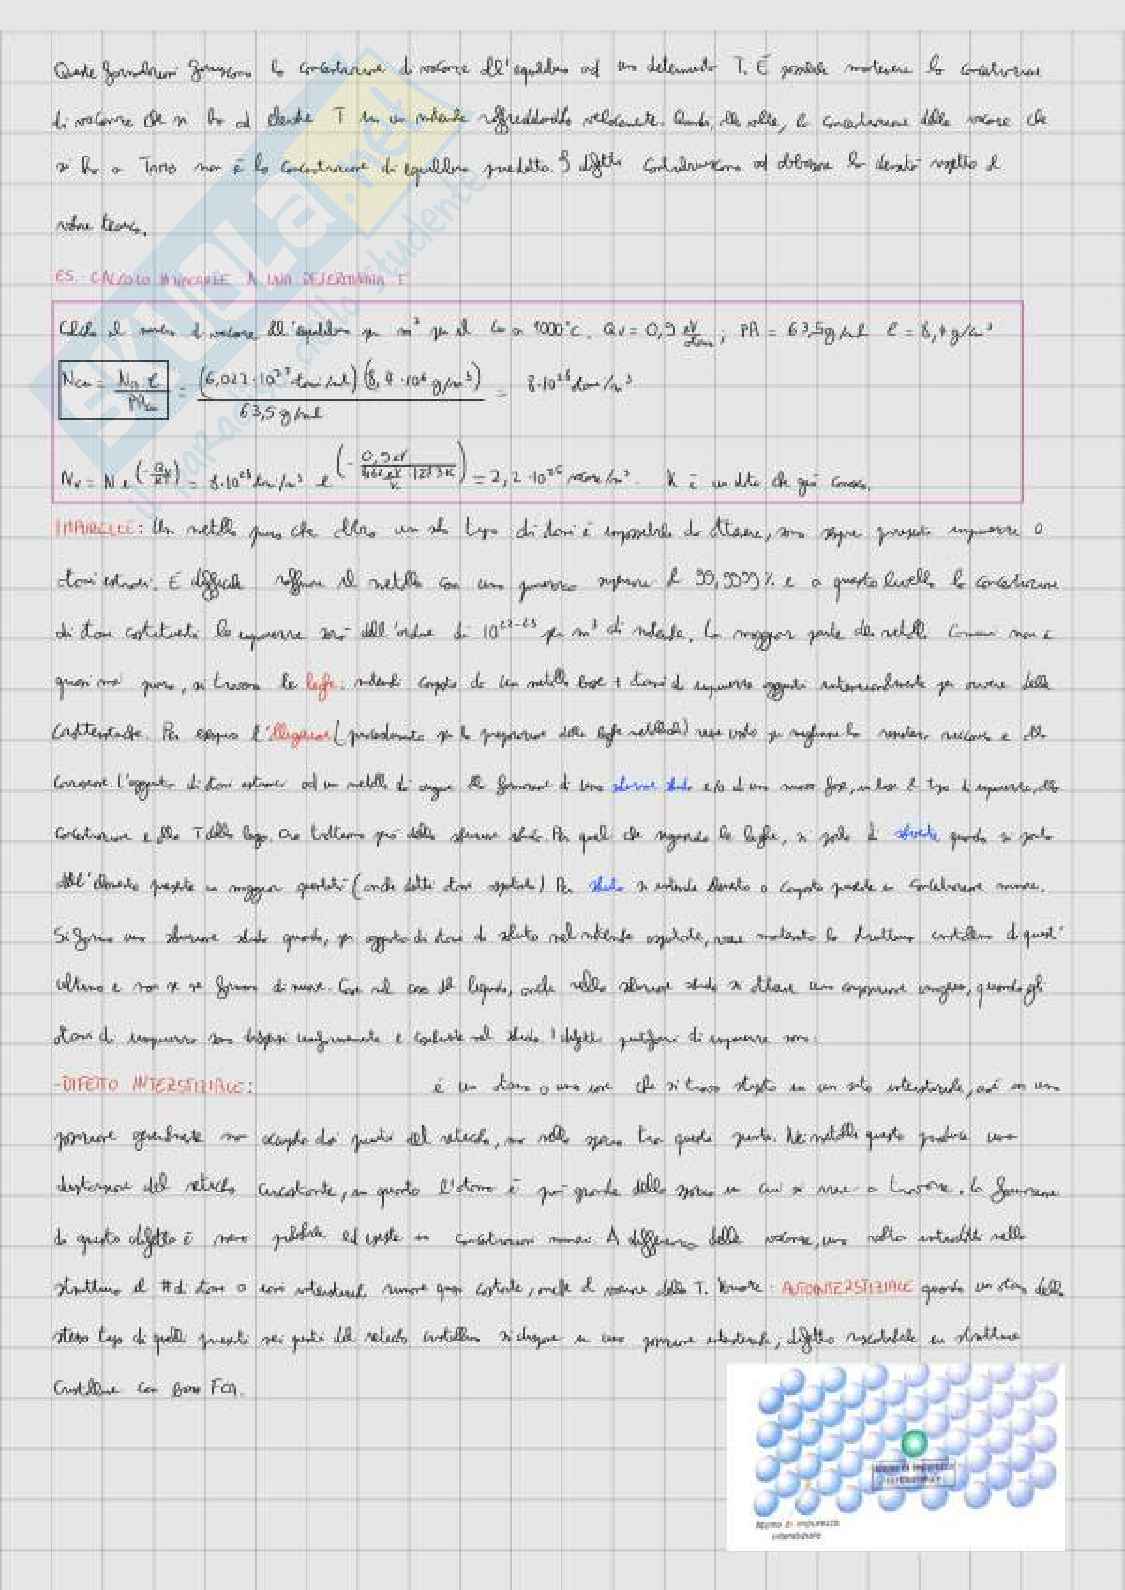 Queste formulazioni forniscono la concentrazione di vacanze all'equilibrio ad una determinata T. È possibile mantenere la concentrazione
di vacanze che si ha ad elevate T in un materiale raffreddandolo velocemente. Quindi, alle volte, la concentrazione delle vacanze che
si ha a Tamb non è la concentrazione di equilibrio predetta. I difetti contribuiscono ad abbassare la densità rispetto al
valore teorico.
ES. CALCOLO VACANZE A UNA DETERMINATA T
Calcola il numero di vacanze all'equilibrio per m³ per il Cu a 1000°C. Qv = 0,9 eV/atomo; PA = 63,5 g/mol ρ = 8,4 g/cm³
NCu = NA ρ / PACu = (6,022·10²³ atomi/mol)(8,4·10⁶ g/m³) / 63,5 g/mol = 8·10²⁸ atomi/m³
Nv = N e^(-Qv/KT) = 8·10²⁸ atomi/m³ e^(-0,9 eV / 8,62 eV/K · 1273K) = 2,2·10²⁵ vacanze/m³. K è un dato che già conosco.
Un metallo puro che abbia un solo tipo di atomi è impossibile da ottenere, sono sempre presenti impurezze o
atomi estranei. È difficile raffinare il metallo con una purezza superiore al 99,9999% e a questo livello la concentrazione
di atomi costituenti le impurezze sarà dell'ordine di 10²²⁻²³ per m³ di materiale. La maggior parte dei metalli comuni non è
quasi mai puro, si trovano le leghe: materiali composti da un metallo base + atomi di impurezza aggiunti intenzionalmente per avere delle
caratteristiche. Per esempio l'alligazione (procedimento per la preparazione delle leghe metalliche) viene usato per migliorare la resistenza meccanica e alla
corrosione. L'aggiunta di atomi estranei ad un metallo dà origine alla formazione di una soluzione solida e/o di una nuova fase, in base al tipo di impurezza, alla
concentrazione e alla T della lega. Ora trattiamo però della soluzione solida. Per quel che riguarda le leghe, si parla di solvente quando si parla
dell'elemento presente in maggior quantità (anche detti atomi ospitanti). Per soluto si intende elemento o composto presente in concentrazione minore.
Si forma una soluzione solida quando, per aggiunta di atomi di soluto nel materiale ospitante, viene mantenuta la struttura cristallina di quest'
ultimo e non se ne formano di nuove. Come nel caso dei liquidi, anche nella soluzione solida si ottiene una composizione omogenea, quando gli
atomi di impurezza sono dispersi uniformemente e nel solido. I difetti puntiformi di impurezze sono:
-DIFETTO INTERSTIZIALE: è un atomo o uno ione che si trova in un sito interstiziale, cioè in una
posizione generalmente non occupata dai punti del reticolo, ma nello spazio tra questi punti. Nei metalli questo produce una
distorsione del reticolo circostante, in quanto l'atomo è più grande dello spazio in cui si viene a trovare. La formazione
di questo difetto è meno probabile ed esiste in concentrazioni minori. A differenza delle vacanze, una volta introdotti nella
struttura il # di atomi o ioni interstiziali rimane quasi costante, anche al variare della T. AUTOINTERSTIZIALE quando un atomo dello
stesso tipo di quelli presenti nei punti del reticolo cristallino si dispone in una posizione interstiziale, difetto riscontrabile in strutture
cristalline con basso FCA.
Atomo di impurezza
interstiziale